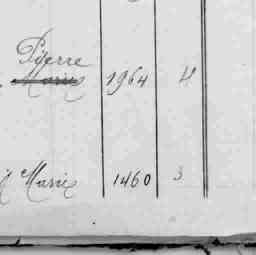 Pierre
Marie 1964 4
Marie 1460 3